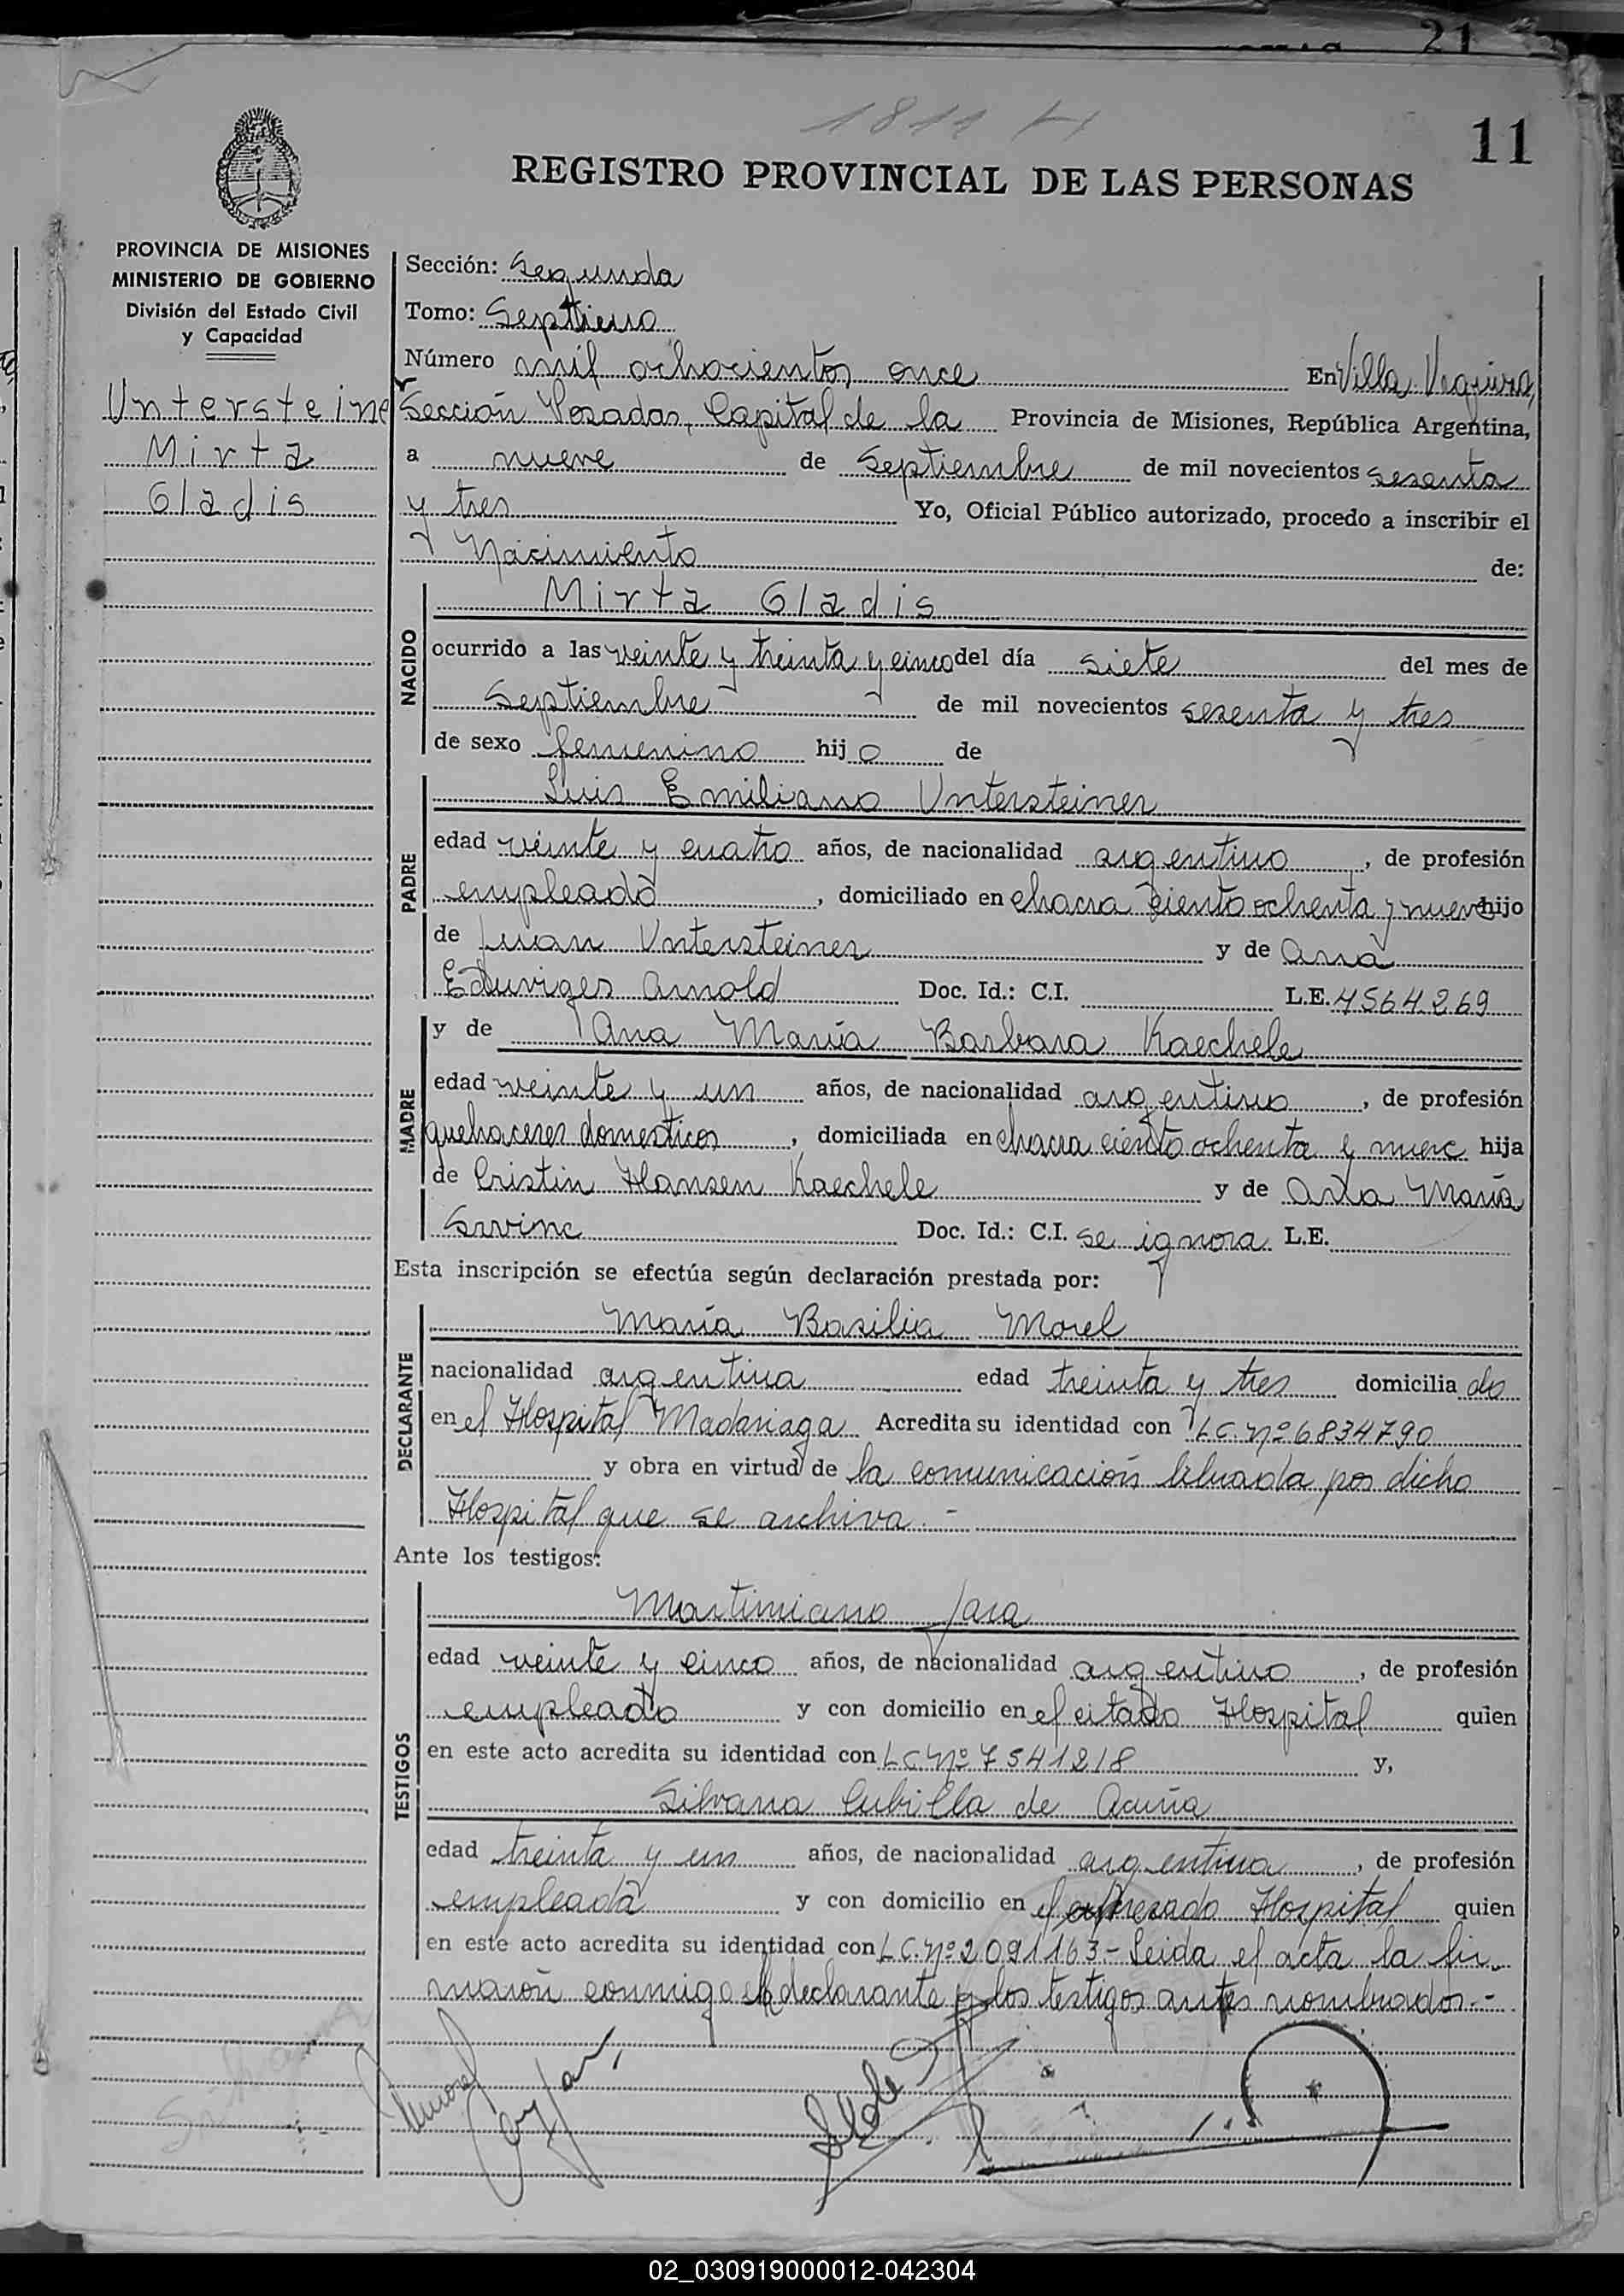 21
1811 H
11
REGISTRO PROVINCIAL DE LAS PERSONAS
PROVINCIA DE MISIONES
MINISTERIO DE GOBIERNO
División del Estado Civil
y Capacidad
Untersteine
Mirta
Gladis
Sección: Segunda
Tomo: Septimo
Número mil ochocientos once En Villa Urquiza,
Sección Posadas, Capital de la Provincia de Misiones, República Argentina,
a nueve de Septiembre de mil novecientos sesenta
y tres Yo, Oficial Público autorizado, procedo a inscribir el
Nacimiento de:
NACIDO
Mirta Gladis
ocurrido a las veinte y treinta y cinco del día siete del mes de
Septiembre de mil novecientos sesenta y tres
de sexo femenino hijo de
PADRE
Luis Emiliano Untersteiner
edad veinte y cuatro años, de nacionalidad argentino, de profesión
empleado, domiciliado en chacra ciento ochenta y nueve hijo
de Juan Untersteiner y de Ana
Eduviges Arnold Doc. Id.: C.I. L.E. 4564269
MADRE
y de Ana María Barbara Kaechele
edad veinte y un años, de nacionalidad argentino, de profesión
quehaceres domesticos, domiciliada en chacra ciento ochenta y nueve hija
de Cristin Hansen Kaechele y de Ana María
Doc. Id.: C.I. se ignora L.E.
Esta inscripción se efectúa según declaración prestada por:
DECLARANTE
María Basilia Morel
nacionalidad argentina edad treinta y tres domicilia do
en el Hospital Madariaga Acredita su identidad con L.C. Nº 6834790
y obra en virtud de la comunicación librada por dicho
Hospital que se archiva.-
Ante los testigos:
TESTIGOS
Martimiano Jara
edad veinte y cinco años, de nacionalidad argentino, de profesión
empleado y con domicilio en el citado Hospital quien
en este acto acredita su identidad con L.C. Nº 7541218 y,
Silvana Cubilla de Acuña
edad treinta y un años, de nacionalidad argentina, de profesión
empleada y con domicilio en el expresado Hospital quien
en este acto acredita su identidad con L.C. Nº 2091163.- Leida el acta la fir-
maron conmigo el declarante y los testigos antes nombrados.-
02_030919000012-042304